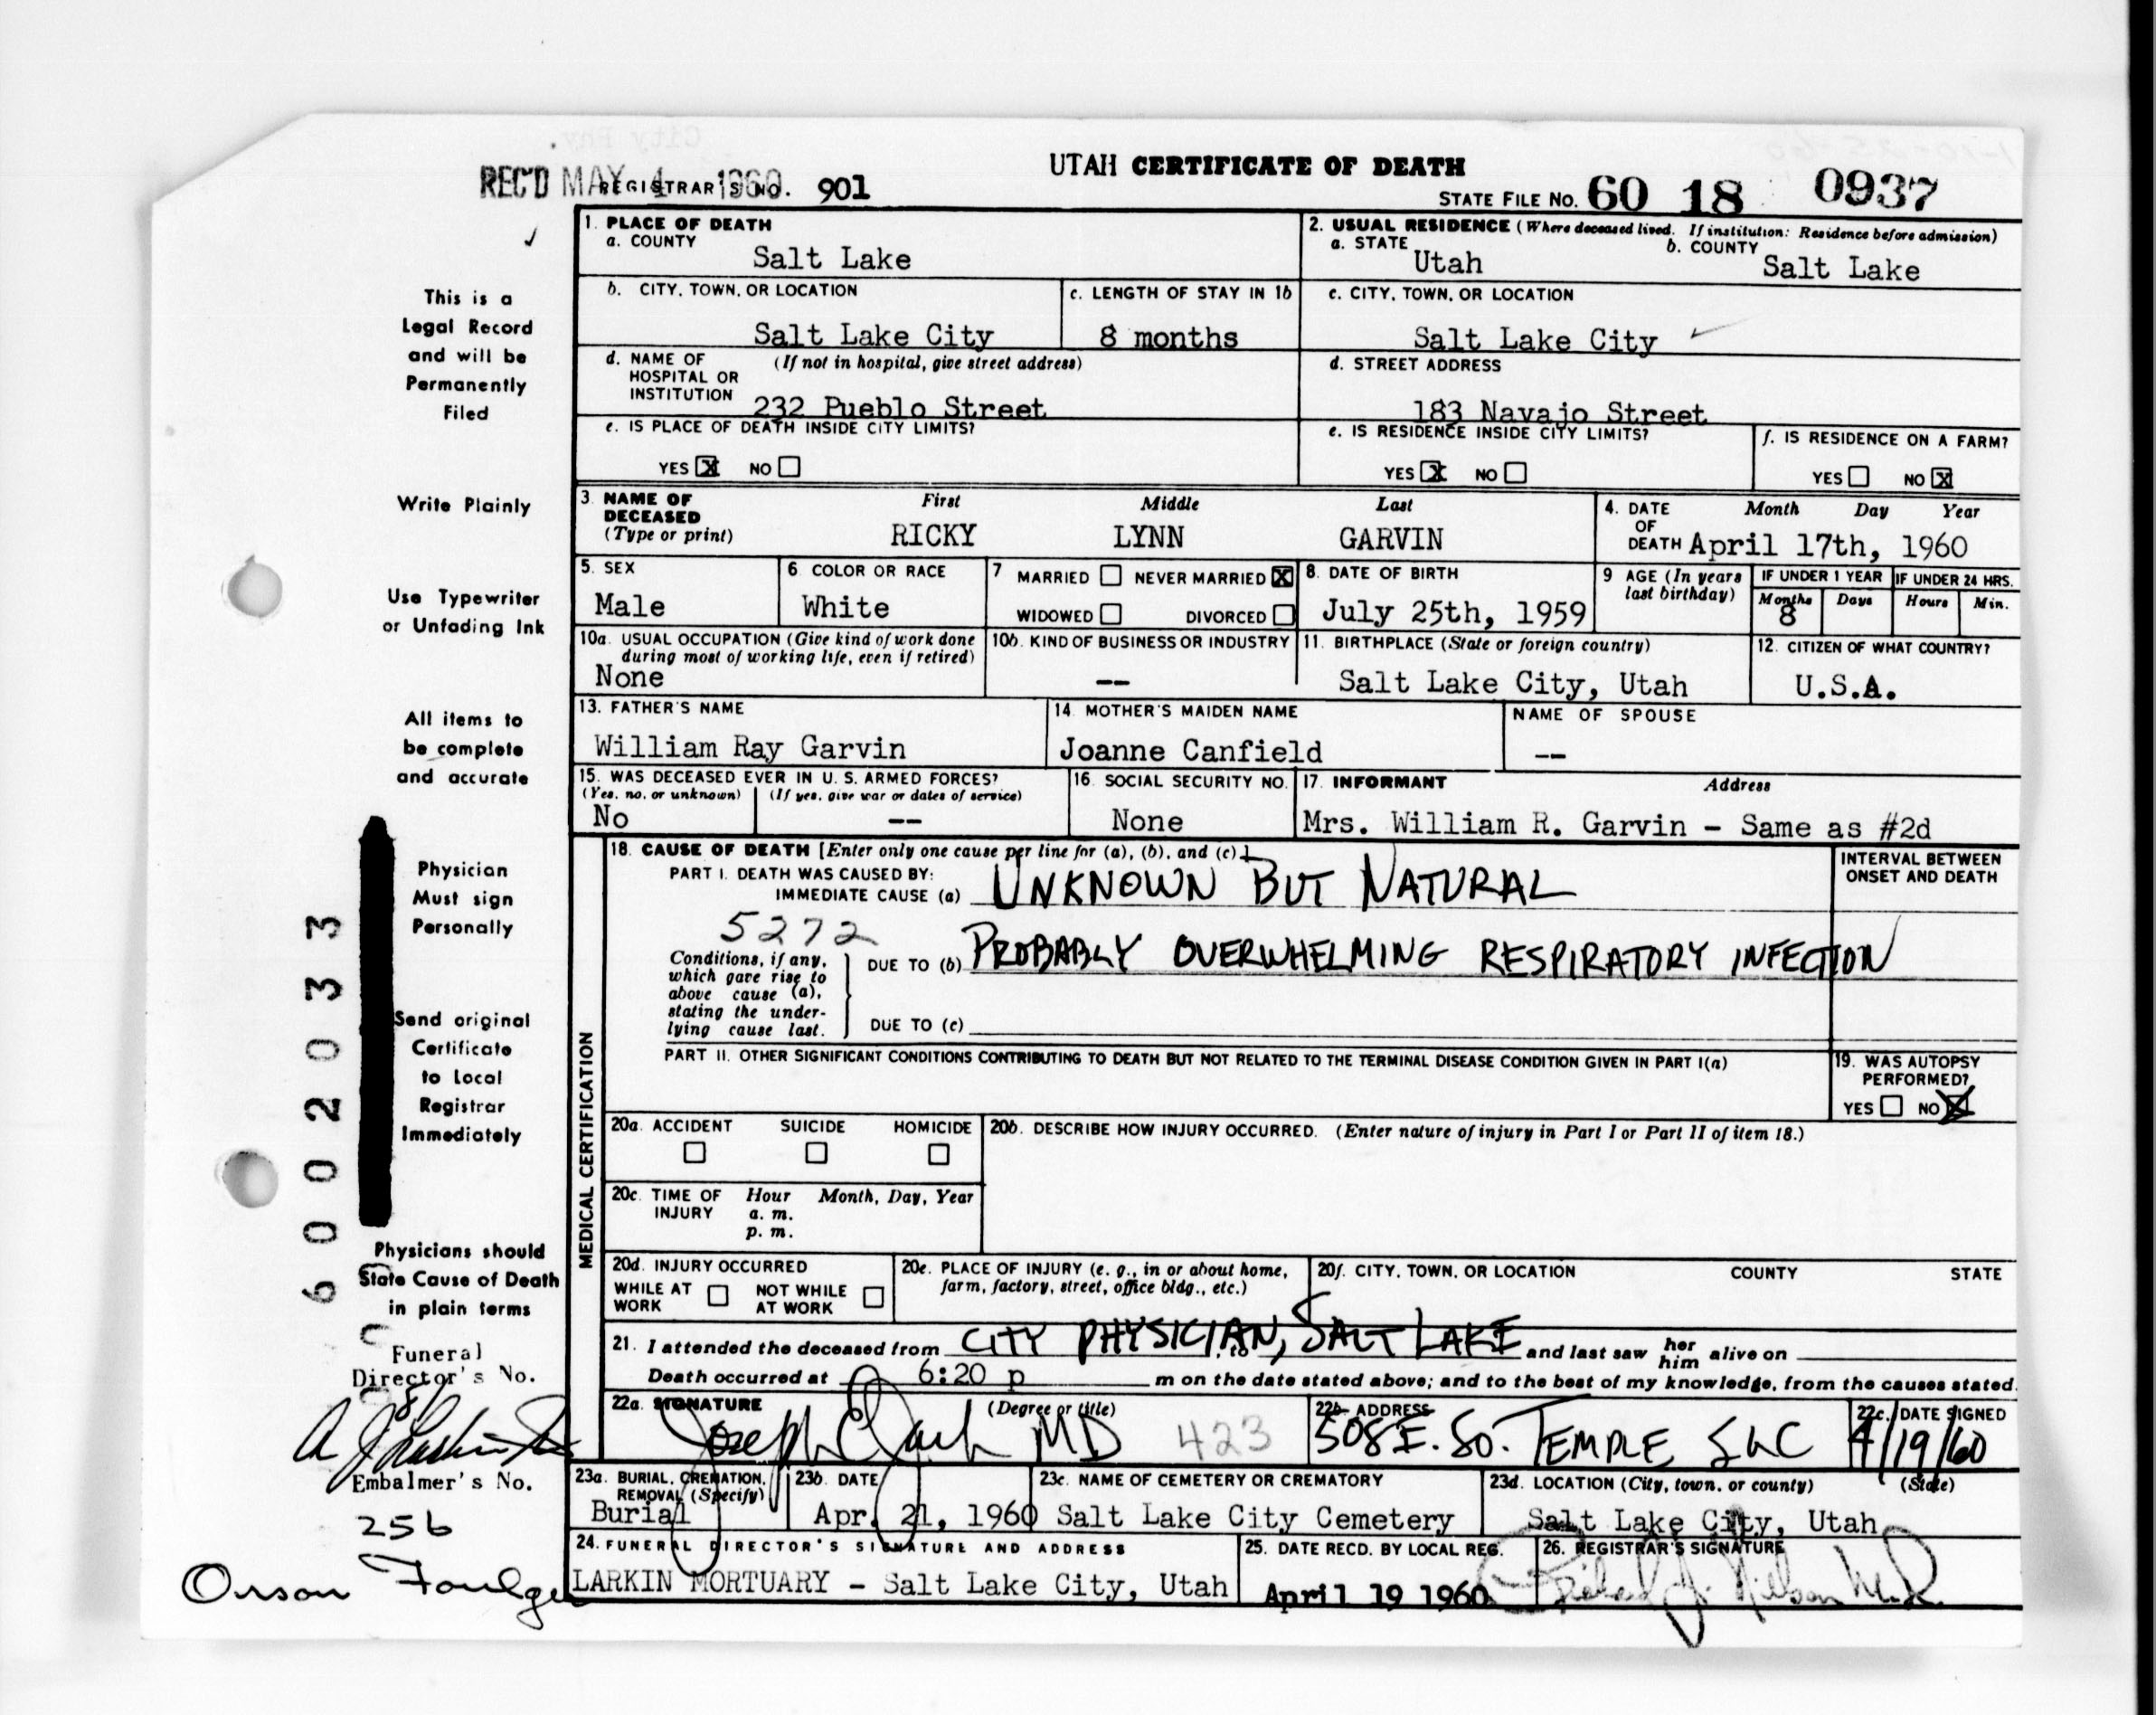 UTAH CERTIFICATE OF DEATH
REC'D MAY 4 1960 REGISTRAR'S NO. 901
STATE FILE NO. 60 18 0937
1. PLACE OF DEATH
a. COUNTY
Salt Lake
2. USUAL RESIDENCE (Where deceased lived. If institution: Residence before admission)
a. STATE b. COUNTY
Utah Salt Lake
b. CITY, TOWN, OR LOCATION
Salt Lake City
c. LENGTH OF STAY IN 1b
8 months
c. CITY, TOWN, OR LOCATION
Salt Lake City
d. NAME OF HOSPITAL OR INSTITUTION (If not in hospital, give street address)
232 Pueblo Street
d. STREET ADDRESS
183 Navajo Street
e. IS PLACE OF DEATH INSIDE CITY LIMITS?
YES X NO
e. IS RESIDENCE INSIDE CITY LIMITS?
YES X NO
f. IS RESIDENCE ON A FARM?
YES NO X
3. NAME OF DECEASED (Type or print)
First Middle Last
RICKY LYNN GARVIN
4. DATE OF DEATH Month Day Year
April 17th, 1960
5. SEX
Male
6. COLOR OR RACE
White
7 MARRIED NEVER MARRIED X
WIDOWED DIVORCED
8. DATE OF BIRTH
July 25th, 1959
9 AGE (In years last birthday)
IF UNDER 1 YEAR IF UNDER 24 HRS.
Months Days Hours Min.
8
10a. USUAL OCCUPATION (Give kind of work done during most of working life, even if retired)
None
10b. KIND OF BUSINESS OR INDUSTRY
--
11. BIRTHPLACE (State or foreign country)
Salt Lake City, Utah
12. CITIZEN OF WHAT COUNTRY?
U.S.A.
13. FATHER'S NAME
William Ray Garvin
14. MOTHER'S MAIDEN NAME
Joanne Canfield
NAME OF SPOUSE
--
15. WAS DECEASED EVER IN U. S. ARMED FORCES?
(Yes, no, or unknown) (If yes, give war or dates of service)
No --
16. SOCIAL SECURITY NO.
None
17. INFORMANT Address
Mrs. William R. Garvin - Same as #2d
MEDICAL CERTIFICATION
18. CAUSE OF DEATH [Enter only one cause per line for (a), (b), and (c).]
PART I. DEATH WAS CAUSED BY:
IMMEDIATE CAUSE (a) UNKNOWN BUT NATURAL
INTERVAL BETWEEN ONSET AND DEATH
5272
Conditions, if any, which gave rise to above cause (a), stating the underlying cause last.
DUE TO (b) PROBABLY OVERWHELMING RESPIRATORY INFECTION
DUE TO (c)
PART II. OTHER SIGNIFICANT CONDITIONS CONTRIBUTING TO DEATH BUT NOT RELATED TO THE TERMINAL DISEASE CONDITION GIVEN IN PART I(a)
19. WAS AUTOPSY PERFORMED?
YES NO X
20a. ACCIDENT SUICIDE HOMICIDE
20b. DESCRIBE HOW INJURY OCCURRED. (Enter nature of injury in Part I or Part II of item 18.)
20c. TIME OF INJURY Hour Month, Day, Year
a. m.
p. m.
20d. INJURY OCCURRED
WHILE AT WORK NOT WHILE AT WORK
20e. PLACE OF INJURY (e. g., in or about home, farm, factory, street, office bldg., etc.)
20f. CITY, TOWN, OR LOCATION COUNTY STATE
21. I attended the deceased from CITY PHYSICIAN, SALT LAKE to and last saw her him alive on
Death occurred at 6:20 p m on the date stated above; and to the best of my knowledge, from the causes stated.
22a. SIGNATURE (Degree or title)
Joseph E Jack MD 423
22b. ADDRESS
508 E. So. TEMPLE SLC
22c. DATE SIGNED
4/19/60
23a. BURIAL, CREMATION, REMOVAL (Specify)
Burial
23b. DATE
Apr. 21, 1960
23c. NAME OF CEMETERY OR CREMATORY
Salt Lake City Cemetery
23d. LOCATION (City, town, or county) (State)
Salt Lake City, Utah
24. FUNERAL DIRECTOR'S SIGNATURE AND ADDRESS
LARKIN MORTUARY - Salt Lake City, Utah
25. DATE RECD. BY LOCAL REG.
April 19 1960
26. REGISTRAR'S SIGNATURE
This is a
Legal Record
and will be
Permanently
Filed
Write Plainly
Use Typewriter
or Unfading Ink
All items to
be complete
and accurate
Physician
Must sign
Personally
Send original
Certificate
to Local
Registrar
Immediately
Physicians should
State Cause of Death
in plain terms
Funeral
Director's No.
Embalmer's No.
256
Orson Foulger
6002033